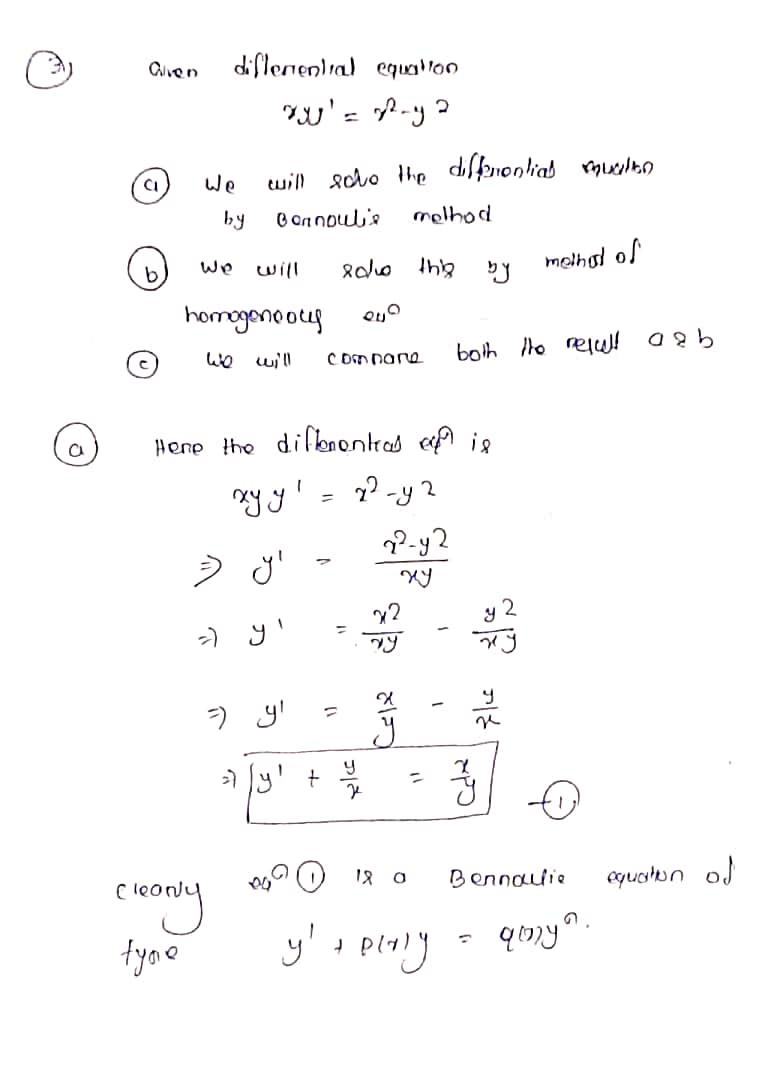 3) Given differential equation
xyy' = x²-y²
(a) We will solve the differential equation
by Bernoulie method
(b) We will solve this by method of
homogeneous eqn
(c) We will compare both the result a & b
(a) Here the differential eqn is
xyy' = x²-y²
⇒ y' = x²-y²/xy
⇒ y' = x²/xy - y²/xy
⇒ y' = x/y - y/x
⇒ y' + y/x = x/y —(1)
Clearly eqn (1) is a Bernoulie equation of
type y' + P(x)y = q(x)yⁿ.